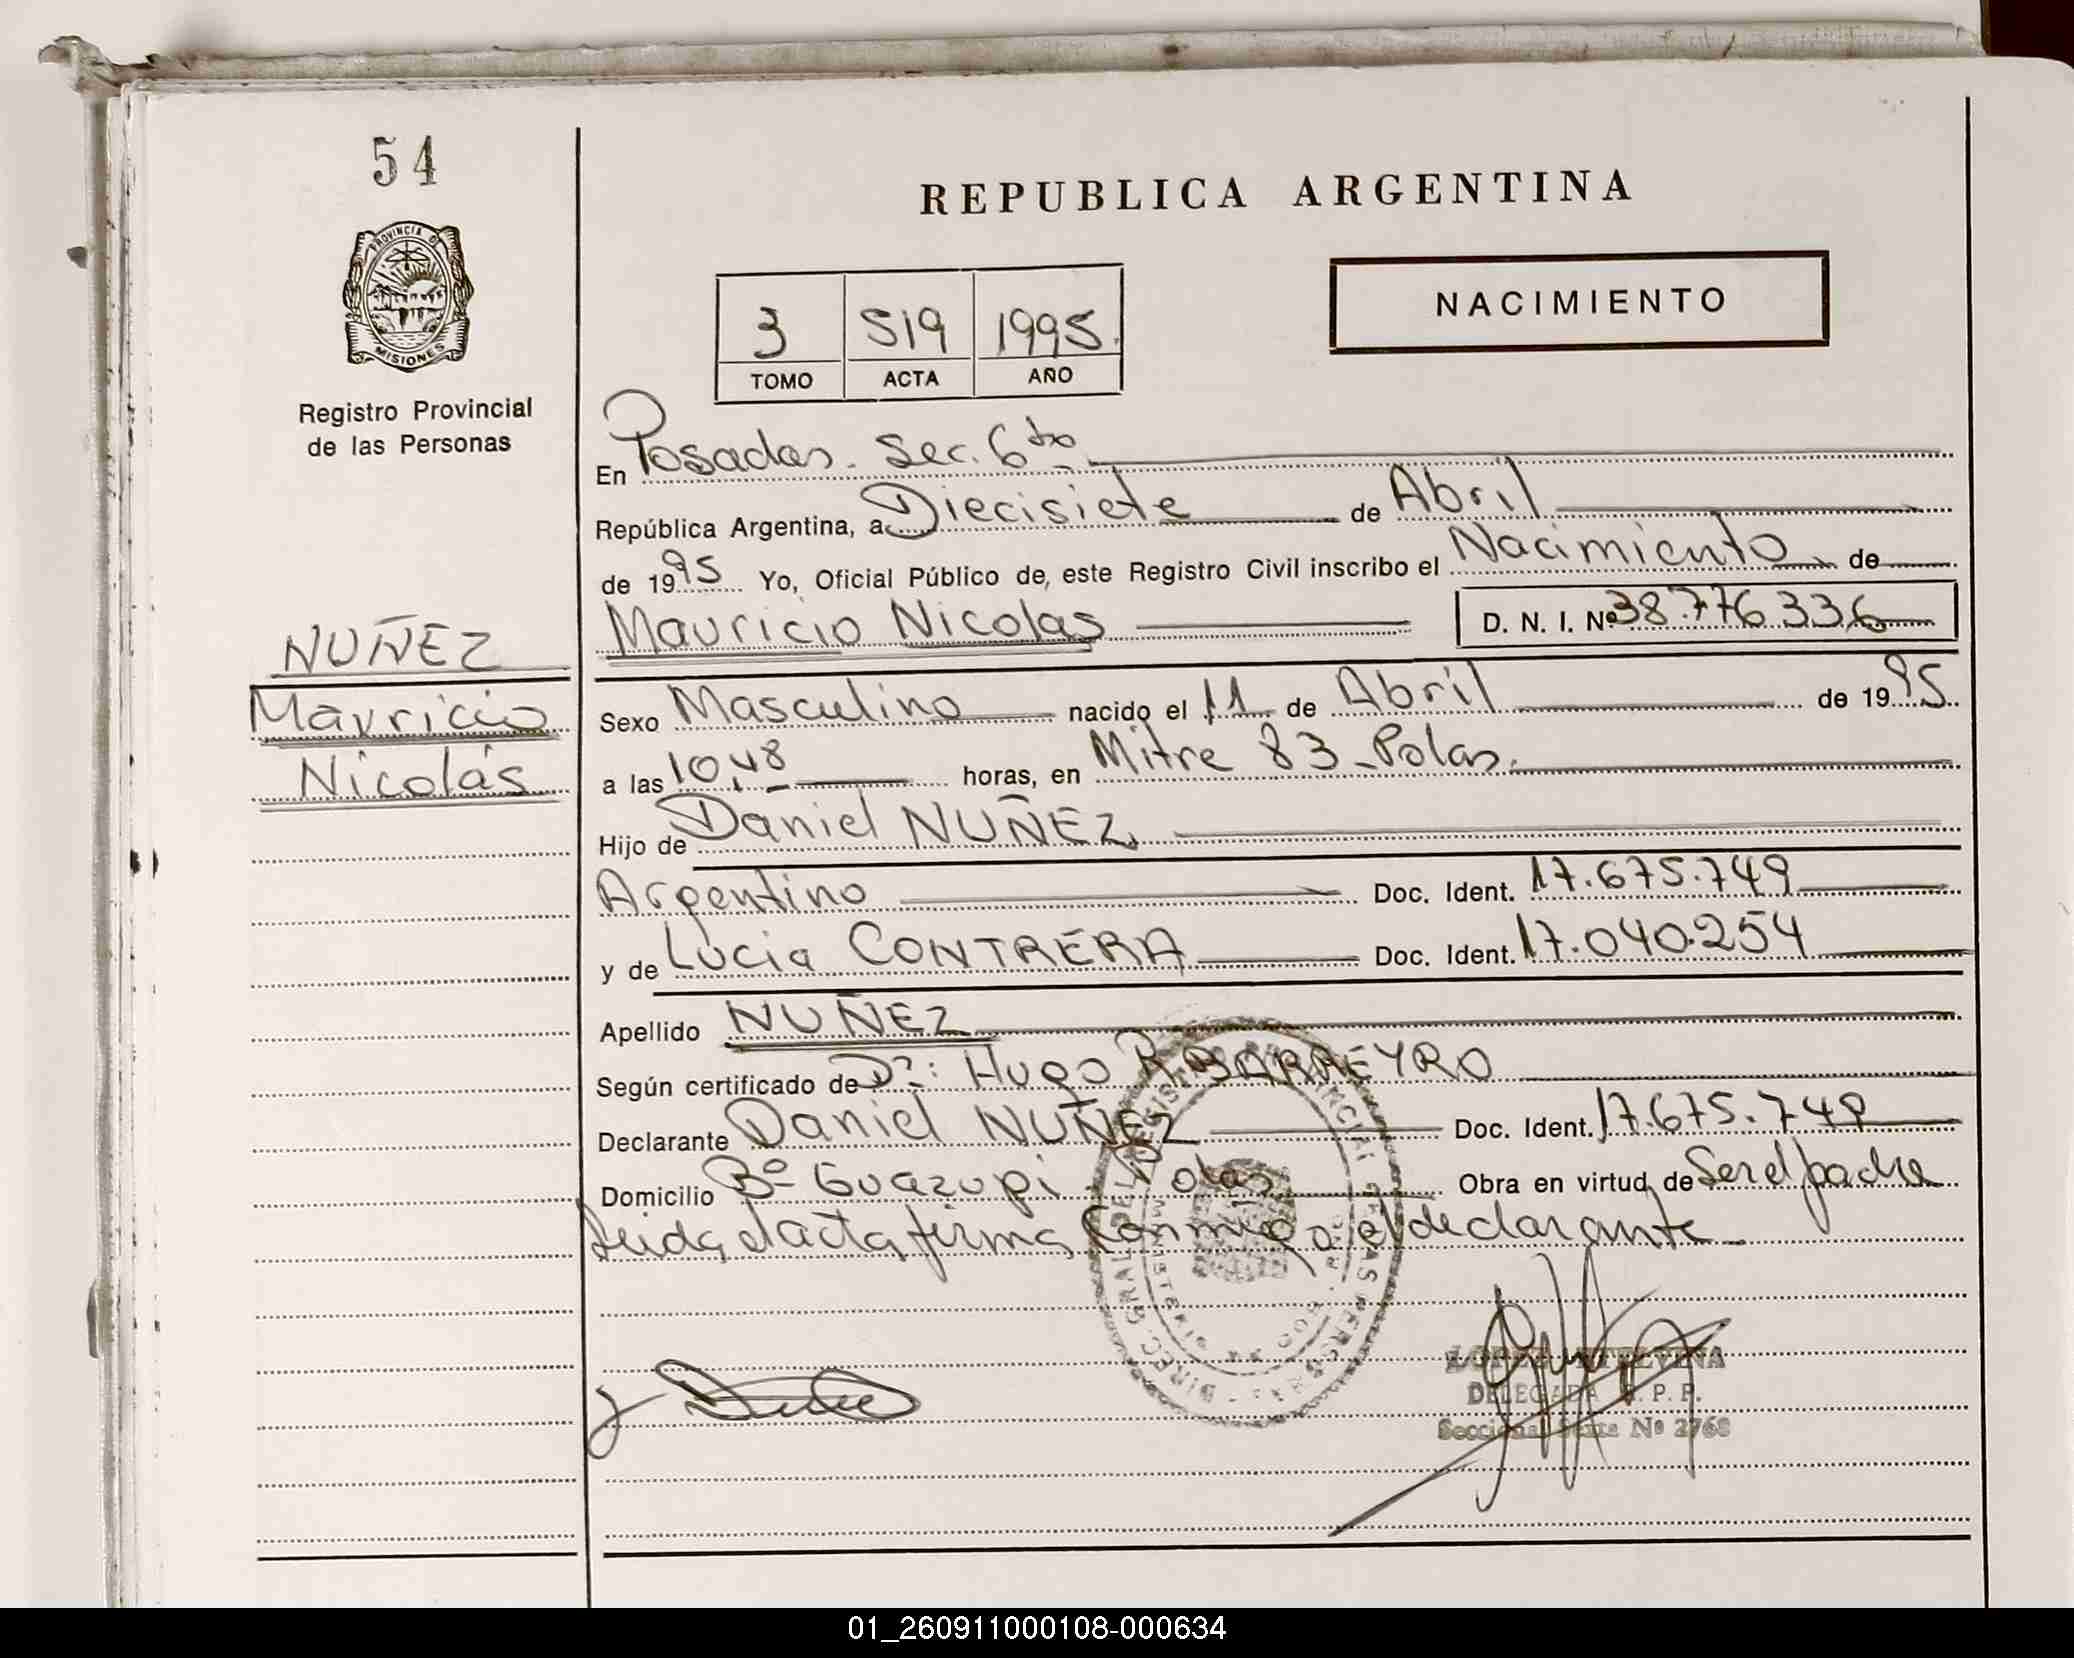 54
PROVINCIA DE
MISIONES
Registro Provincial
de las Personas
NUÑEZ
Mauricio
Nicolás
REPUBLICA ARGENTINA
NACIMIENTO
3 519 1995
TOMO ACTA AÑO
En Posadas. Sec. 6ta
República Argentina, a Diecisiete de Abril
de 1995 Yo, Oficial Público de, este Registro Civil inscribo el Nacimiento de
Mauricio Nicolas D. N. I. Nº 38.776.336
Sexo Masculino nacido el 11 de Abril de 1995
a las 10,48 horas, en Mitre 83 - Pdas.
Hijo de Daniel NUÑEZ
Argentino Doc. Ident. 17.675.749
y de Lucia CONTRERA Doc. Ident. 17.040.254
Apellido NUÑEZ
Según certificado de Dr: Hugo R. BARREYRO
Declarante Daniel NUÑEZ Doc. Ident. 17.675.749
Domicilio Bº Guazupi Pdas Obra en virtud de Ser el padre
Leida el acta firma Conmigo el declarante
DELEGADA R. P. P.
Seccional Sexta Nº 2768
01_260911000108-000634